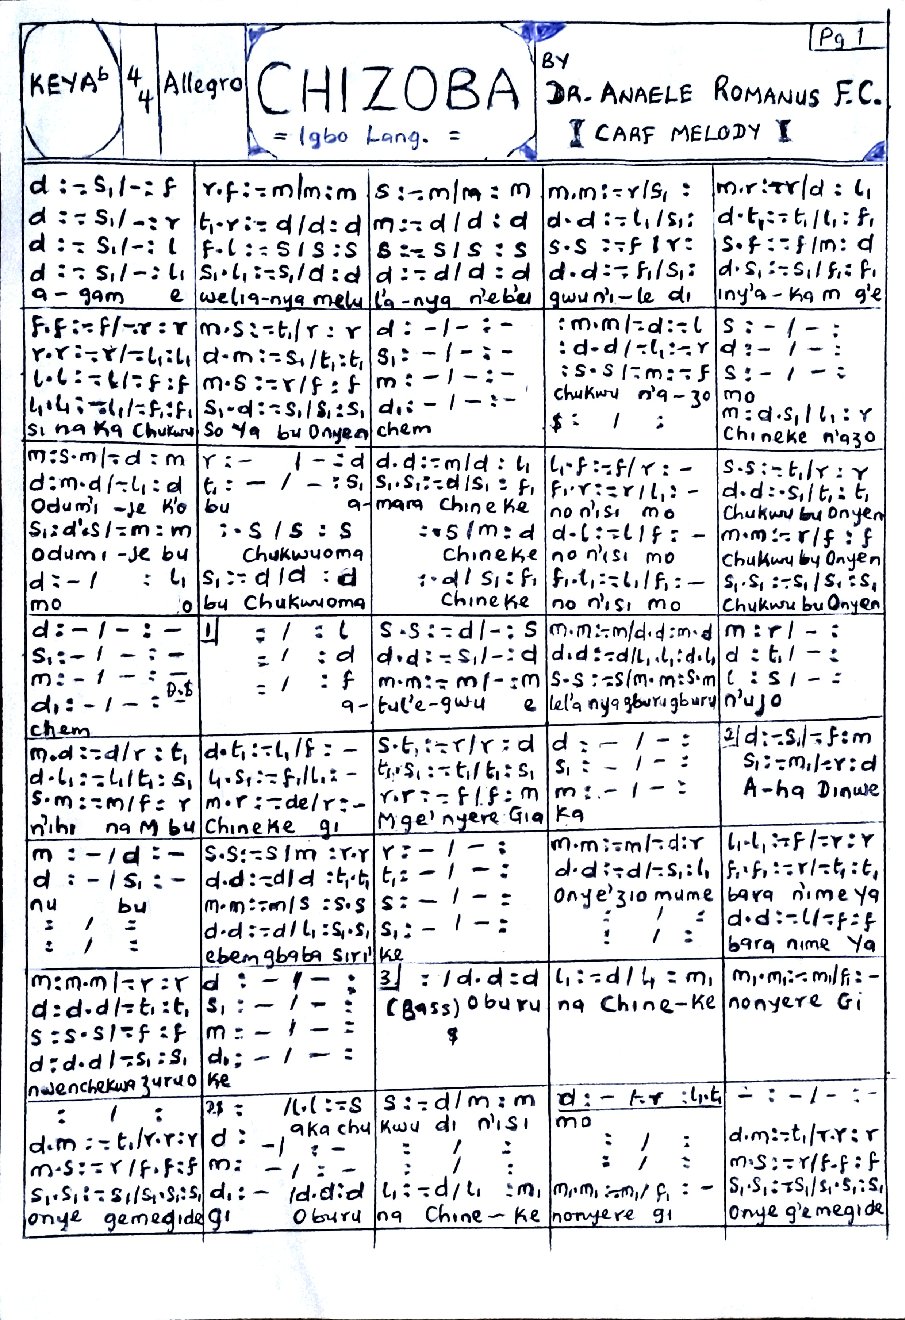 Pg 1
KEYAb 4/4 Allegro CHIZOBA BY
DR. ANAELE ROMANUS F.C.
= Igbo Lang. = [ CARF MELODY ]
d :-.S₁/-: f
d :-.S₁/-: r
d :-.S₁/-: l
d :-.S₁/-: l₁
a - gam e
r.f:-.m/m:m
t₁.r:-.d/d:d
f.l:-.S/S:S
S₁.l₁:-.S₁/d:d
welia-nya melu
S:-.m/m:m
m:-.d/d:d
S:-.S/S:S
d:-.d/d:d
l'a-nya n'ebeu
m.m:-.r/S₁:
d.d:-.l₁/S₁:
S.S:-.f/r:
d.d:-.f₁/S₁:
gwu n'i-le di
m.r:-.r/d:l₁
d.t₁:-.t₁/l₁:f₁
S.f:-.f/m:d
d.S₁:-.S₁/f₁:f₁
iny'a-ka m g'e
f.f:-.f/-.r:r
r.r:-.r/-.l₁:l₁
l.l:-.l/-.f:f
l₁.l₁:-.l₁/-.f₁:f₁
si na ka Chukwu
m.S:-.t₁/r:r
d.m:-.S₁/t₁:t₁
m.S:-.r/f:f
S₁.d:-.S₁/S₁:S₁
So Ya bu Onyen
d:-/-:-
S₁:-/-:-
m:-/-:-
d₁:-/-:-
chem
:m.m/-.d:-.l
:d.d/-.l₁:-.r
:S.S/-.m:-.f
chukwu n'a-zo
$: / :
S:-/-:
d:-/-:
S:-/-:
mo
m:d.S₁/l₁:r
Chineke n'azo
m:S.m/-.d:m
d:m.d/-.l₁:d
Odum'i-je k'o
S₁:d'.S/-.m:m
Odumi-je bu
d:-/ :l₁
mo o
r:- /-:d
t₁:-/-:S₁
bu a-
:.S/S:S
Chukwuoma
S₁:-.d/d:d
bu Chukwuoma
d.d:-.m/d:l₁
S₁.S₁:-.d/S₁:f₁
mara Chineke
:.S/m:d
Chineke
:.d/S₁:f₁
Chineke
l₁.f:-.f/r:-
f₁.r:-.r/l₁:-
no n'isi mo
d.l:-.l/f:-
no n'isi mo
f₁.l₁:-.l₁/f₁:-
no n'isi mo
S.S:-.t₁/r:r
d.d:-.S₁/t₁:t₁
Chukwu bu Onyen
m.m:-.r/f:f
Chukwu by Onyen
S₁.S₁:-.S₁/S₁:S₁
Chukwu bu Onyen
d:-/-:-
S₁:-/-:-
m:-/-:-
d₁:-/-:- D.$
chem
1] :/ :l
:/ :d
:/ :f
a-
S.S:-.d/-:S
d.d:-.S₁/-:d
m.m:-.m/-:m
tul'e-gwu e
m.m:-.m/d.d:m.d
d.d:-.d/l₁.l₁:d.l₁
S.S:-.S/m.m:S.m
lel'a nya gburugburu
m:r/-:
d:t₁/-:
l:S/-:
n'ujo
m.d:-.d/r:t₁
d.l₁:-.l₁/t₁:S₁
S.m:-.m/f:r
n'ihi na M bu
d.t₁:-.l₁/f:-
l₁.S₁:-.f₁/l₁:-
m.r:-.de/r:-
Chineke gi
S.t₁:-.r/r:d
t₁.S₁:-.t₁/t₁:S₁
r.r:-.f/f:m
M ge' nyere Gia
d:-/-:
S₁:-/-:
m:-/-:
ka
2] d:-.S₁/-.f:m
S₁:-.m₁/-.r:d
A-ha Dinwe
m:-/d:-
d:-/S₁:-
nu bu
: / :
: / :
S.S:-.S/m:r.r
d.d:-.d/d:t₁.t₁
m.m:-.m/S:S.S
d.d:-.d/l₁:S₁.S₁
ebem gbaba siri'
r:-/-:
t₁:-/-:
S:-/-:
S₁:-/-:
ke
m.m:-.m/-.d:r
d.d:-.d/-.S₁:l₁
Onye'zio mume
: / :
: / :
l₁.l₁:-.f/-.r:r
f₁.f₁:-.r/-.t₁:t₁
bara n'ime Ya
d.d:-.l/-.f:f
bara nime Ya
m:m.m/-.r:r
d:d.d/-.t₁:t₁
S:S.S/-.f:f
d:d.d/-.S₁:S₁
nwenchekwa zuruo
d:-/-:
S₁:-/-:
m:-/-:
d₁:-/-:
ke
3] :/d.d:d
(Bass) Oburu
$
l₁:-.d/l₁:m₁
na Chine-ke
m₁.m₁:-.m₁/f₁:-
nonyere Gi
: / :
d.m:-.t₁/r.r:r
m.S:-.r/f.f:f
S₁.S₁:-.S₁/S₁.S₁:S₁
onye gemegide
2$: /l.l:-.S
aka chu
d: -/:-
m: -/:-
d₁:- /d.d:d
gi Oburu
S:-.d/m:m
kwu di n'isi
: / :
: / :
l₁:-.d/l₁:m₁
na Chine-ke
d:-/-.r:l₁.t₁
mo
: / :
: / :
m₁.m₁:-.m₁/f₁:-
nonyere gi
-:-/-:-
d.m:-.t₁/r.r:r
m.S:-.r/f.f:f
S₁.S₁:-.S₁/S₁.S₁:S₁
Onye g'emegide